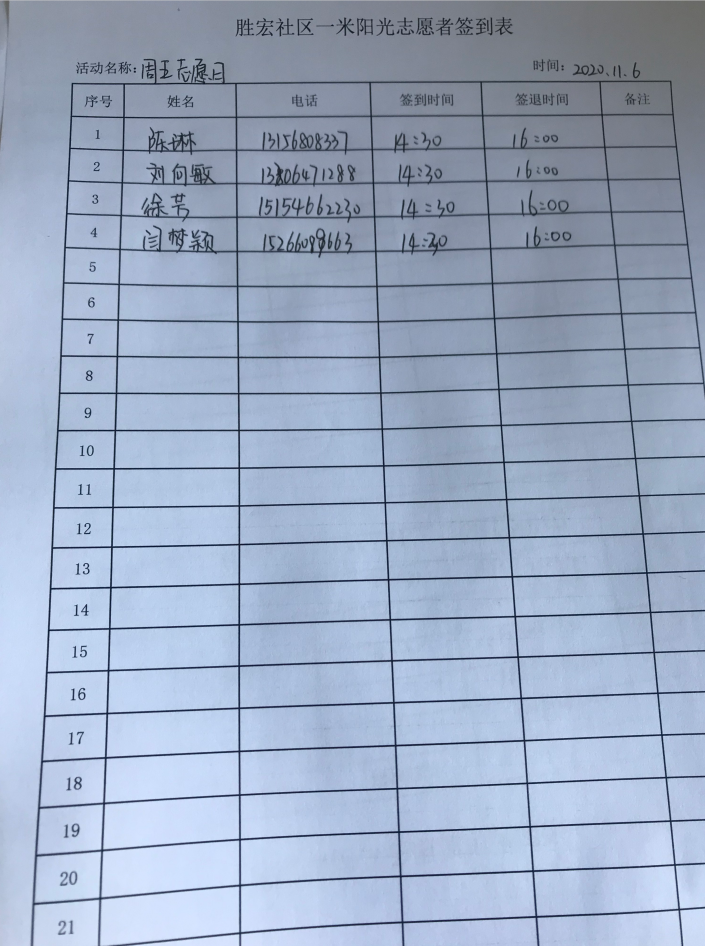 胜宏社区一米阳光志愿者签到表
活动名称：周五志愿日 时间：2020.11.6
序号 姓名 电话 签到时间 签退时间 备注
1 陈琳 13156808337 14:30 16:00
2 刘向敏 13806471288 14:30 16:00
3 徐芳 15154662230 14:30 16:00
4 闫梦颖 14:30 16:00
5
6
7
8
9
10
11
12
13
14
15
16
17
18
19
20
21